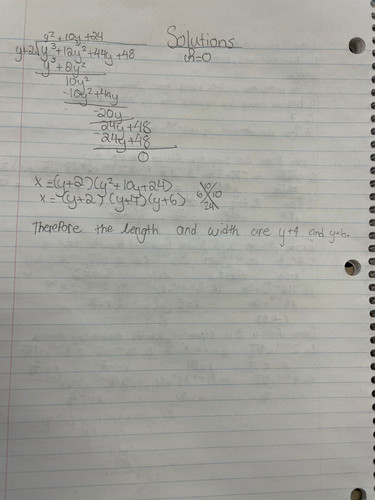 Solutions
y² + 10y + 24
y+2√y³ + 12y² + 44y + 48
r=0
y³ + 2y²
10y²
-10y² + 44y
-20y
24y + 48
-24y + 48
0
x = (y+2)(y² + 10y + 24)
x = (y+2)(y+4)(y+6)
10
6 10
24
Therefore the length and width are y+4 and y+6.